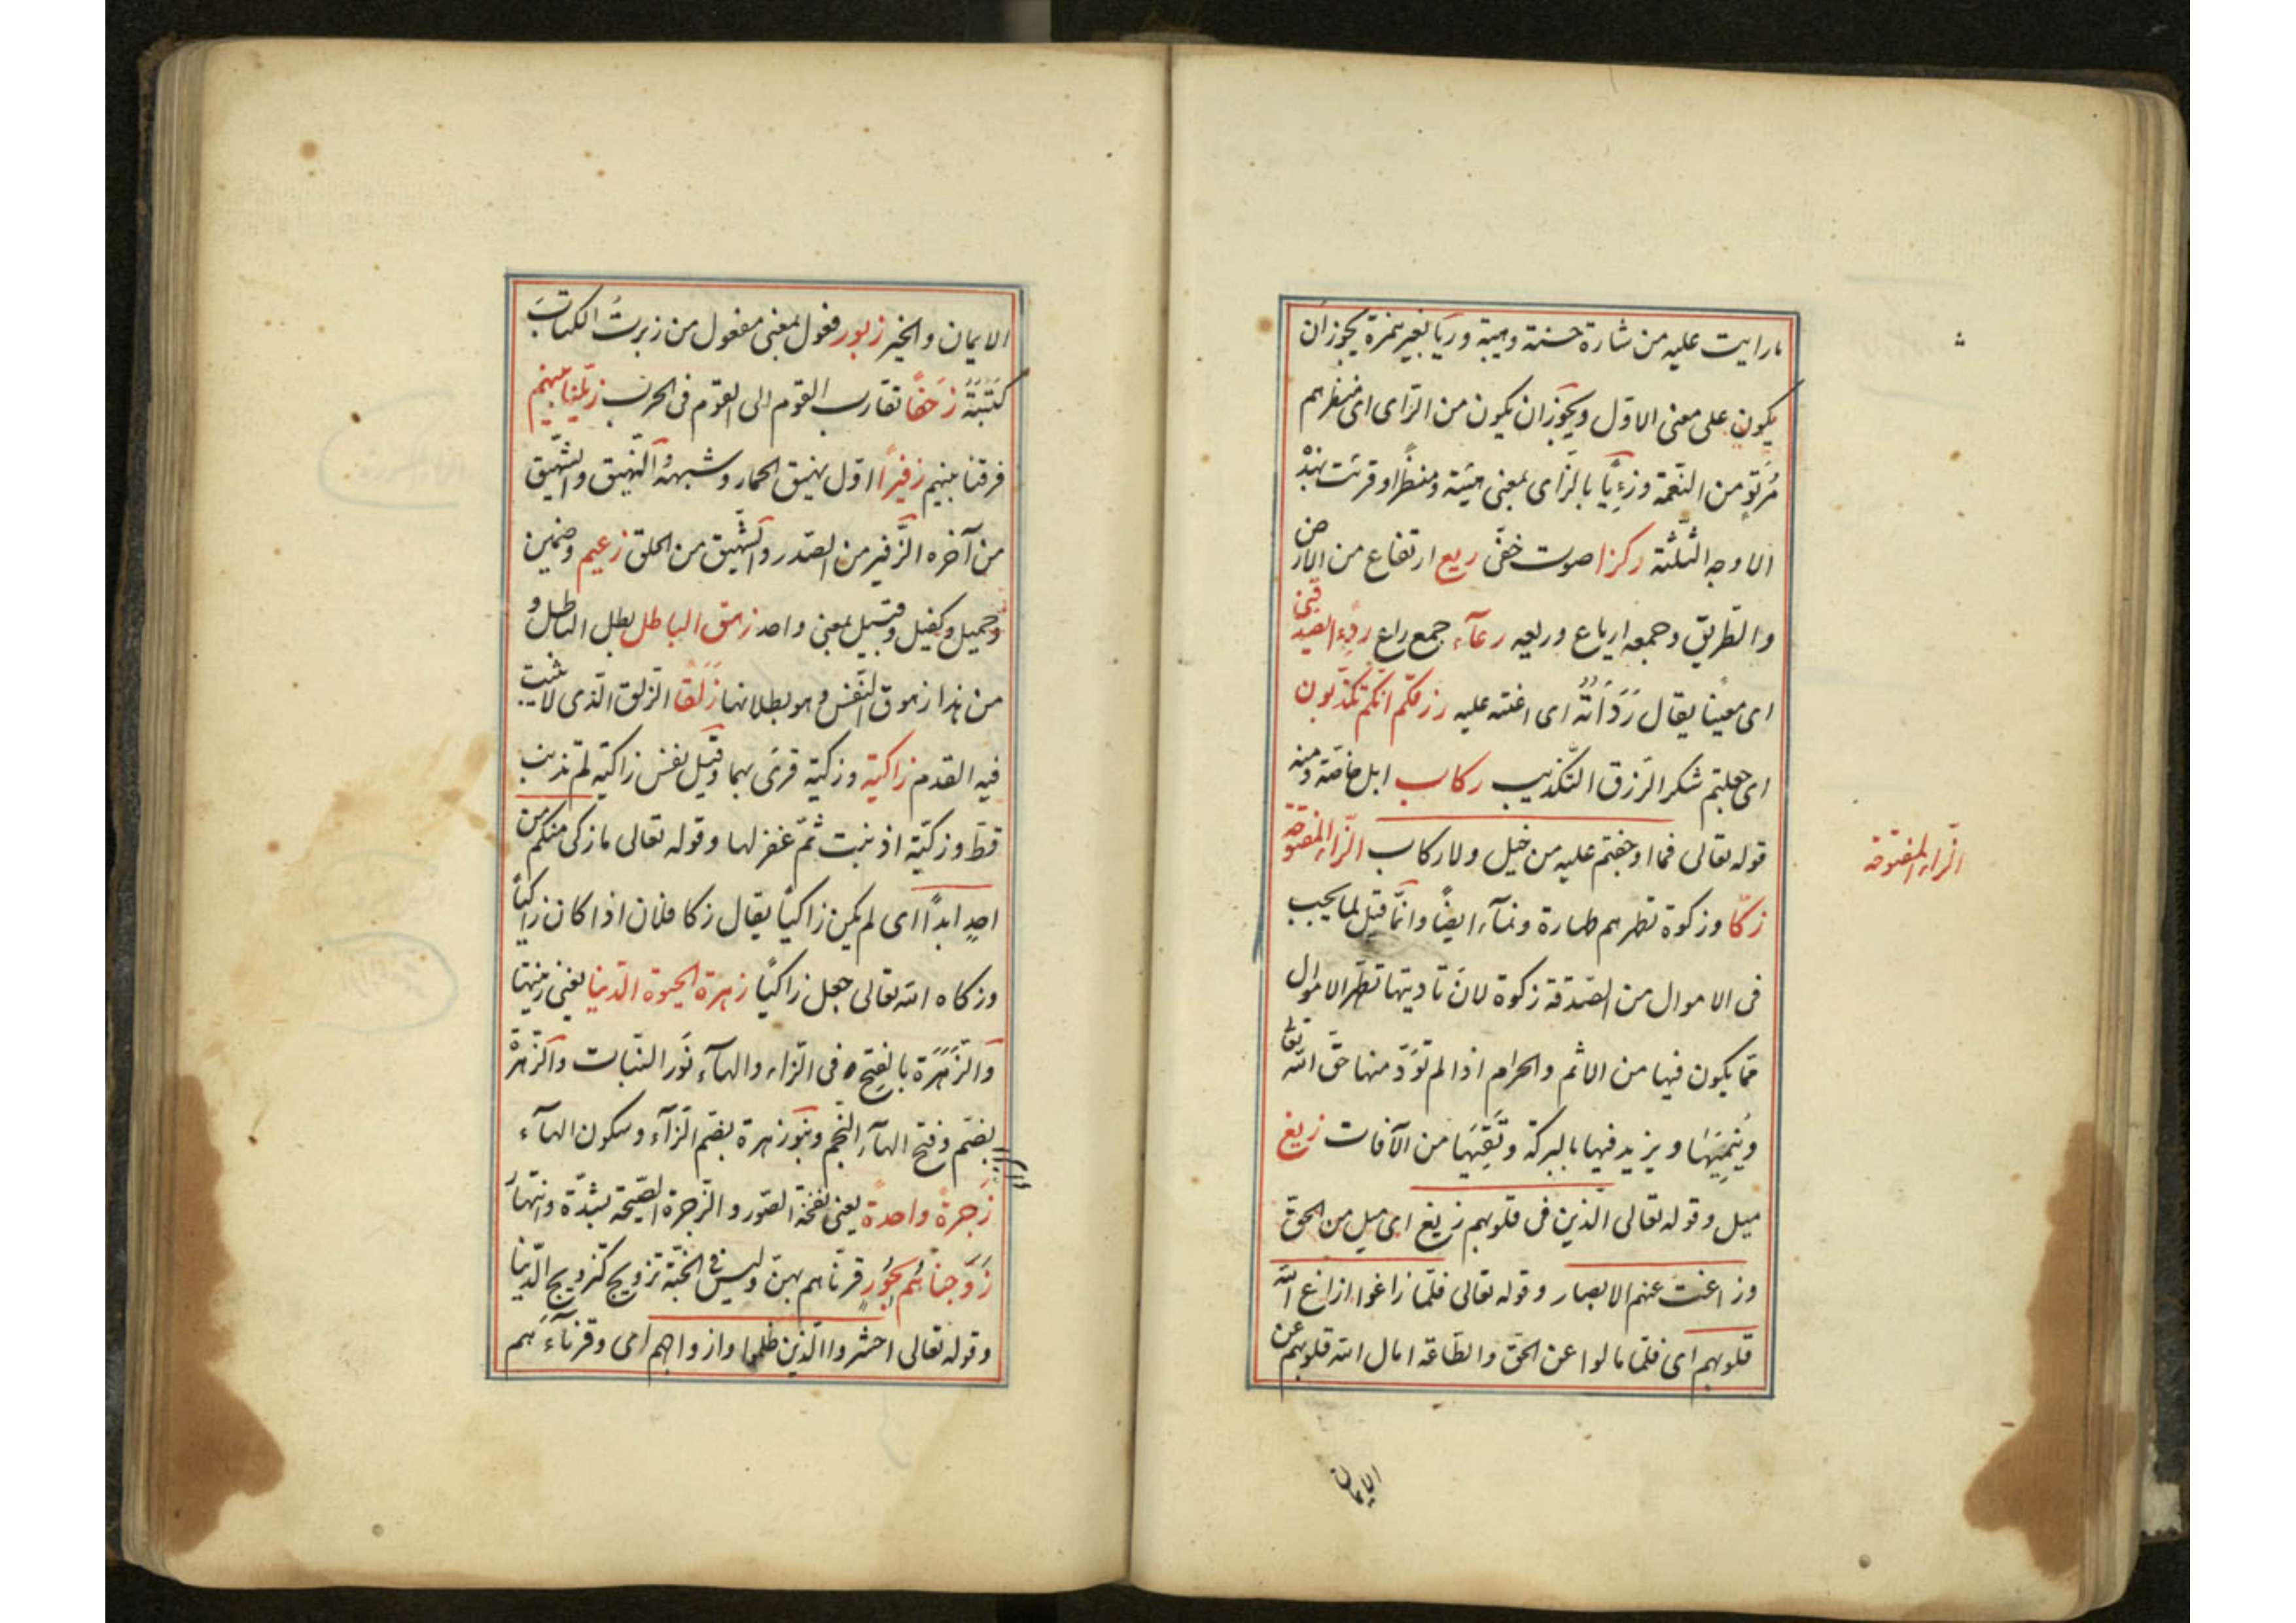 ما رايت عليه من شارة حسنة وهيبة وريا بغير همزة يجوز ان
يكون على معنى الاوّل ويجوز ان يكون من الرّاى اى منظرهم
مُرتوٍ من النّعمة وزِيًّا بالزّاى بمعنى هيئة ومنظرا وقرئت بهذْ
الاوجه الثّلثة ركزا صوت خفّى ريع ارتفاع من الارض
والطّريق وجمعه ارياع وريعه رعآء جمع راع ردِءً يصدّقنى
اى معينًا يقال رَدَأتُهُ اى اعنته عليه رزقكم انّكم تكذّبون
اى جعلتم شكر الرّزق التّكذيب ركاب ابل خاصّة ومنه
قوله تعالى فما اوجفتم عليه من خيل ولا ركاب الزّاء المفتوحة
الزّاء المفتوحة
زكّا وزكوة تطهرهم طهارة ونمآء ايضًا وانّما قيل لما يجب
فى الاموال من الصّدقة زكوة لانّ تاديتها تطهّر الاموال
ممّا يكون فيها من الاثم والحرام اذا لم تؤدّ منها حقّ اللّه تعالى
ويُنمِيَها ويزيد فيها بالبركة وتَقِيَها من الآفات زيغ
ميل وقوله تعالى الّذين فى قلوبهم زيغ اى ميل من الحقّ
وزاغت عنهم الابصار وقوله تعالى فلمّا زاغوا ازاغ اللّه
قلوبهم اى فلمّا مالوا عن الحقّ والطّاعة امال اللّه قلوبهم عن
الايمان
الايمان والخير زبور فعول بمعنى مفعول من زبرتُ الكتابَ
كَتَبتَهُ زحفًا تقارب القوم الى القوم فى الحرب زيّلنا بينهم
فرقنا بينهم زفيرًا اوّل نهيق الحمار وشبهه والنّهيق والشّهيق
من آخره الزّفير من الصّدر والشّهيق من الحلق زعيم وضمين
وحميل وكفيل وقبيل بمعنى واحد زهق الباطل بطل الباطل و
من هذا زهوق النّفس وهو بطلانها زَلَقًا الزلق الّذى لا يثبت
فيه القدم زاكية وزكيّة قرئ بهما وقيل نفس زاكية لم تذنب
قطّ وزكيّة اذنبت ثمّ غفر لها وقوله تعالى ما زكى منكم من
احدٍ ابدًا اى لم يكن زاكيًا يقال زكا فلان اذا كان زاكيًا
وزكاه اللّه تعالى جعل زاكيًا زهرة الحيوة الدّنيا يعنى زينتها
والزَّهَرَة بالفتح فى الزاء والهآء نَور النّبات والزّهرة
بضم وفتح الهآء النّجم وبنو زهرة بضم الزّآء وسكون الهآء
زَجرةً واحدةً يعنى نفخة الصّور والزّجرة الصّيحة بشدّة وانتهار
زَوّجناهُم بحُورٍ قرنّاهم بهنّ وليس فى الجنّة تزويج كتزويج الدّنيا
وقوله تعالى احشروا الّذين ظلموا وازواجهم اى وقرنآءَهم